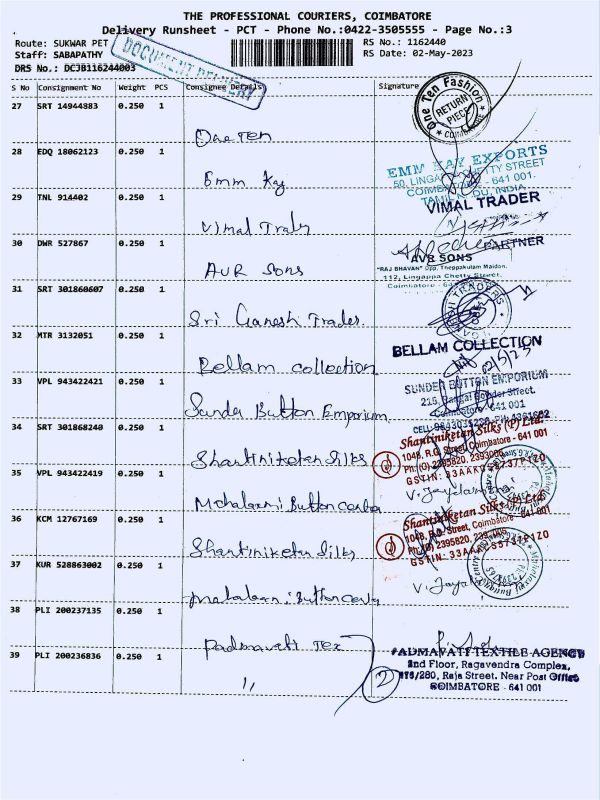 THE PROFESSIONAL COURIERS, COIMBATORE
Delivery Runsheet - PCT - Phone No.:0422-3505555 - Page No.:3
Route: SUKWAR PET
RS No.: 1162440
Staff: SABAPATHY
RS Date: 02-May-2023
DRS No.: DCJB116244003
DOCUMENT DELIVERY
S No Consignment No Weight PCS Consignee Details Signature
27 SRT 14944883 0.250 1
One Ten
One Ten Fashion
RETURN
PIECE
COIMBATORE
28 EDQ 18062123 0.250 1
Emm Kay
EMM KAY EXPORTS
50, LINGA CHETTY STREET
COIMBATORE - 641 001.
TAMIL NADU, INDIA.
29 TNL 914402 0.250 1
Vimal Trader
VIMAL TRADER
PARTNER
30 DWR 527867 0.250 1
AVR Sons
AVR SONS
"RAJ BHAVAN" Opp. Theppakulam Maidan.
112, Lingappa Chetty Street,
Coimbatore - 641
31 SRT 301860607 0.250 1
Sri Ganesh Trader
TRADERS
32 MTR 3132051 0.250 1
Bellam collection
BELLAM COLLECTION
33 VPL 943422421 0.250 1
Sunder Button Emporium
SUNDER BUTTON EMPORIUM
215, Rangai Gowder Street,
Coimbatore - 641 001
34 SRT 301868240 0.250 1
Shantiniketan Silks
Shantiniketan Silks (P) Ltd.
1048, R.G. Street, Coimbatore - 641 001
Ph: (O) 2395820,
35 VPL 943422419 0.250 1
Mahalaxmi Button Center
36 KCM 12767169 0.250 1
Shantiniketan Silks
Shantiniketan Silks (P) Ltd.
1048, R.G. Street, Coimbatore - 641 001
Ph: (O) 2395820,
37 KUR 528863002 0.250 1
mahalaxmi Button Center
38 PLI 200237135 0.250 1
Padmavati Tex
PADMAVATI TEXTILE AGENCY
2nd Floor, Ragavendra Complex,
275/280, Raja Street, Near Post Office
COIMBATORE - 641 001
39 PLI 200236836 0.250 1
11
2